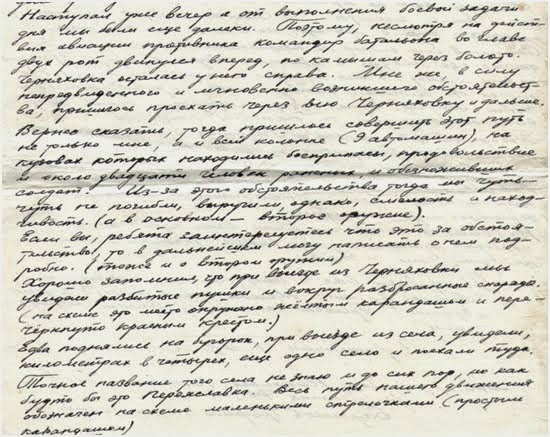 Наступал уже вечер а от выполнения боевой задачи
дня мы были еще далеки. Поэтому, несмотря на дейст-
вия авиации противника командир батальона во главе
двух рот двинулся вперед, по камышам через болото.
Черняховка осталась у него справа. Мне же, в силу
непредвиденного и мгновенно возникшего обстоятельст-
ва, пришлось проехать через всю Черняховку и дальше.
Вернее сказать, тогда пришлось совершить этот путь
не только мне, а и всей колонне (9 автомашин), на
кузовах которых находились боеприпасы, продовольствие
и около двадцати человек раненых и обезноживших
солдат. Из-за этого обстоятельства тогда мы чуть-
чуть не погибли, выручили, однако, смелость и наход-
чивость. (а в основном – второе оружие).
Если вы, ребята заинтересуетесь что это за обстоя-
тельство, то в дальнейшем могу написать о нем под-
робно. (тоже и о втором оружии)
Хорошо запомнил, что при въезде из Черняховки мы
увидели разбитые пушки и вокруг разбросанные снаряды.
(на схеме это место окружено жёлтым карандашом и пере-
чёркнуто красным крестом.)
Едва поднялись на бугорок, при выезде из села, увидели,
километрах в четырех, еще одно село и поехали туда.
Точное название того села не знаю и до сих пор, но как
будто бы это Переяславка. Весь путь нашего движения
обозначен на схеме маленькими стрелочками (простым
карандашом)